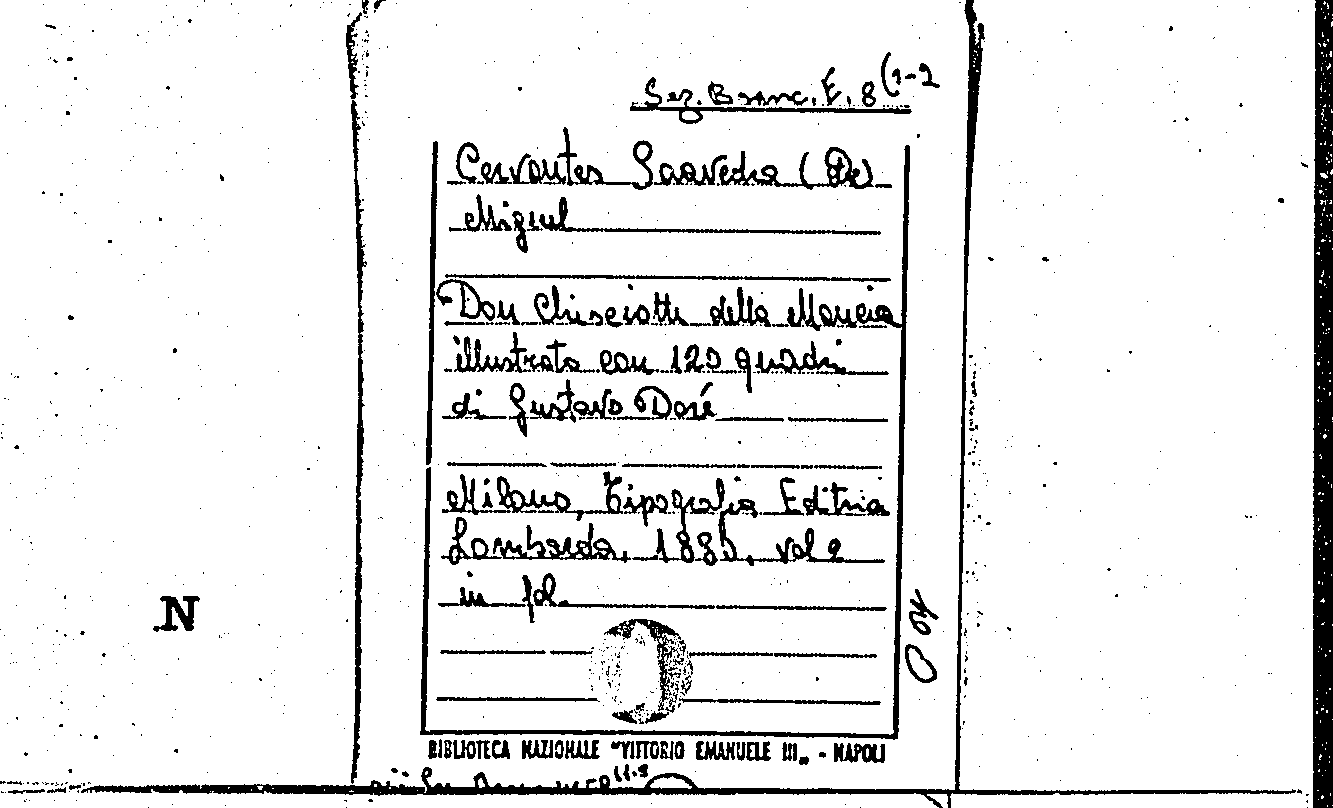 Sez. Branc. E. 8 (1-2
Cervantes Saavedra (De)
Miguel
Don Chisciotte della Mancia
illustrato con 120 quadri
di Gustavo Doré
Milano, Tipografia Editrice
Lombarda, 1880, vol 2
in fol.
N
BIBLIOTECA NAZIONALE "VITTORIO EMANUELE III„ - NAPOLI